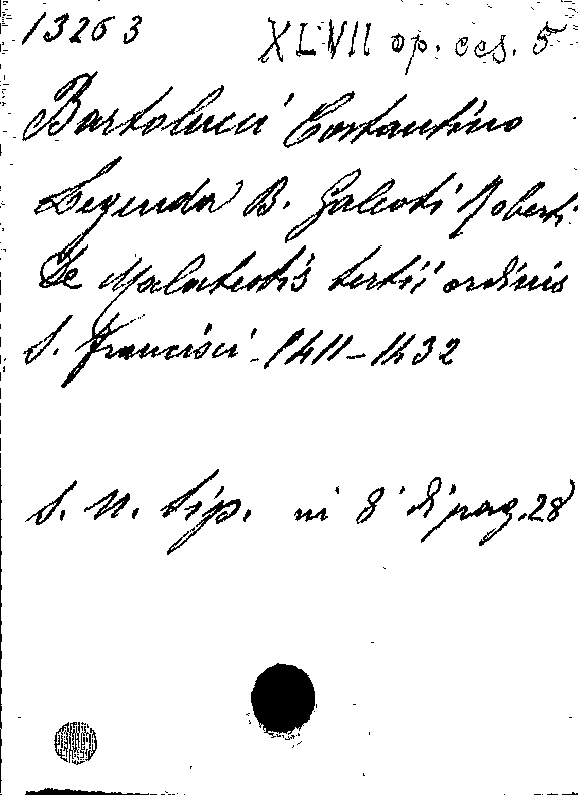 13263 XLVII op. ces. 5
Bartolucci Costantino
Legenda B. Galeoti Roberti
De Malatestis tertii ordinis
S. Francisci - 1411-1432
S. N. tip. in 8° di pag. 28